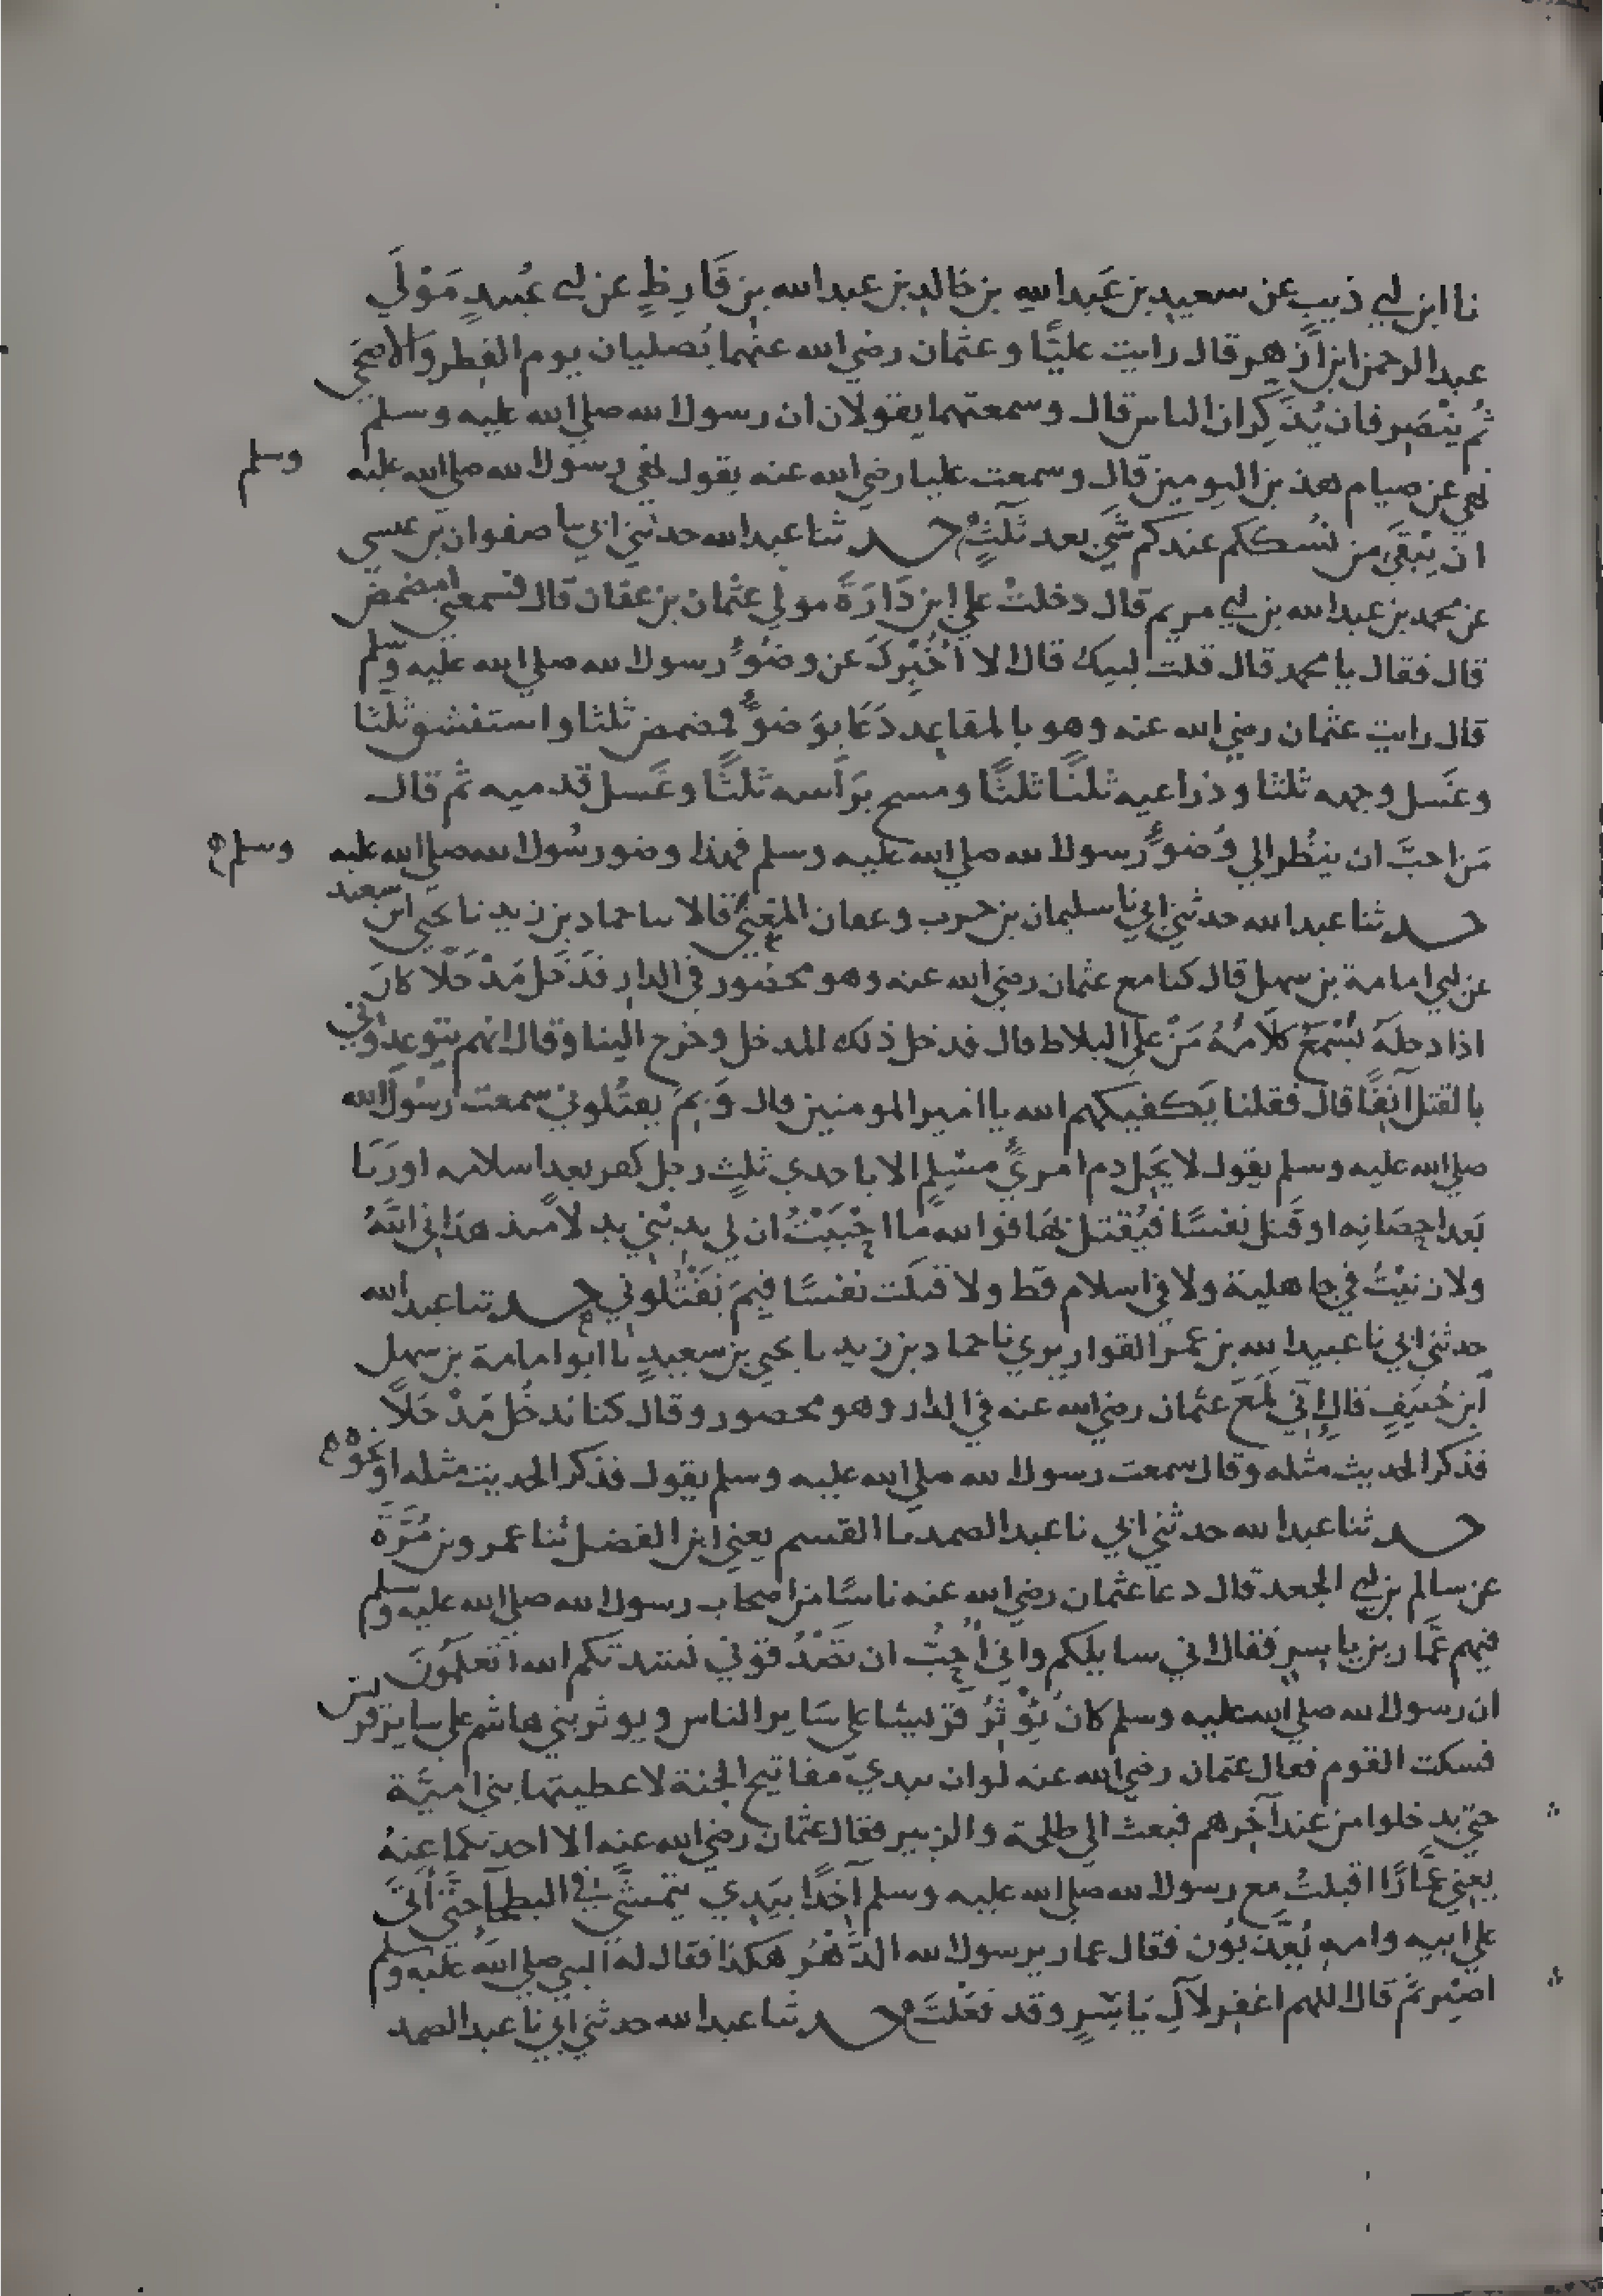 نا ابن ابي ذيب عن سعيد بن عبد الله بن خالد بن عبد الله بن قارظ عن ابي عبيد مَوْلَى
عبد الرحمن ابن ازهر قال رايت عليًا وعثمان رضي الله عنهما يُصليان يوم الفطر والاضحى
ثم ينصرفان يُذَكِّران الناس قال وسمعتهما يقولان ان رسول الله صلى الله عليه وسلم
نهى عن صيام هذين اليومين قال وسمعت عليا رضي الله عنه يقول نهى رسول الله صلى الله عليه وسلم
ان يَبْقَى من نُسككم عندكم شي بعد ثلثٍ حدثنا عبد الله حدثني ابي نا صفوان بن عيسى
عن محمد بن عبد الله بن ابي مريم قال دخلت على ابن دَارَةَ مولى عثمان بن عفان قال فسمعني امضمض
قال فقال يا محمد قال قلت لبيك قال الا اُخْبِرك عن وضوء رسول الله صلى الله عليه وسلم
قال رايت عثمان رضي الله عنه وهو بالمقاعد دَعَا بوَضوءٍ فمضمض ثلثا واستنشق ثلثا
وغسل وجهه ثلثا وذراعيه ثلثًا ثلثًا ومسح برأسه ثلثًا وغَسل قدميه ثم قال
مَن احبَّ ان ينظر الى وُضوء رسول الله صلى الله عليه وسلم فهذا وضو رسُول الله صلى الله عليه وسلم
حدثنا عبد الله حدثني ابي نا سليمان بن حرب وعفان المعنى قالا نا حماد بن زيد نا يحيى ابن سعيد
عن ابي امامة بن سهل قال كنا مع عثمان رضي الله عنه وهو محصور في الدار فدَخَل مَدْخَلًا كان
اذا دخله يُسْمَعُ كلامُهُ مَنْ على البلاط قال فدخل ذلك المدخل وخرج الينا وقال انهم يتوعدوني
بالقتل آنِفًا قال فقلنا يَكفيكهم الله يا امير المومنين قال وَبِمَ يقتُلوني سمعت رسُول الله
صلى الله عليه وسلم يقول لا يَحِل دم امرئٍ مسْلِمٍ الا باحدى ثلثٍ رجل كفر بعد اسلامه او زَنَا
بَعد احصَانِه او قَتل نفسًا فيُقتل بها فوالله ما احْبَبْتُ ان لي بديني بدلا منذ هداني اللهُ
ولا زنَيْتُ في جاهلية ولا في اسلام قط ولا قتلت نفسًا فبِمَ يَقْتُلوني حدثنا عبد الله
حدثني ابي نا عبيد الله بن عمر القواريري نا حماد بن زيد نا يحيى بن سعيدٍ نا ابو امامة بن سهل
ابن حُنَيفٍ قال اني لَمَعَ عثمان رضي الله عنه في الدار وهو محصور وقال كنا ندخُل مَدْخَلًا
فذكر الحديث مثله وقال سمعت رسول الله صلى الله عليه وسلم يقول فذكر الحديث مثله او نحوه
حدثنا عبد الله حدثني ابي نا عبد الصمد نا القسم يعني ابن الفضل ثنا عمرو بن مُرَّةَ
عن سالم بن ابي الجعد قال دعا عثمان رضي الله عنه ناسًا من اصحاب رسول الله صلى الله عليه وسلم
فيهم عَمَّار بن ياسرٍ فقال اني سايلكم واني اُحِبُّ ان تَصْدُقوني نشدتكم الله اتعلمُونَ
ان رسول الله صلى الله عليه وسلم كان يُؤْثِرُ قريشا على سَاير الناس ويوثر بني هاشم على ساير قريش
فسكت القوم فقال عثمان رضي الله عنه لو ان بيدي مفاتيح الجنة لاعطيتها بني اميَّة
حتى يدخلوا من عند آخِرهم فبعث الى طلحة والزبير فقال عثمان رضي الله عنه الا احدثكما عنهُ
يعني عَمَّارًا اقبلتُ مع رسول الله صلى الله عليه وسلم آخِذًا بيَدِي يتمشَّى في البطحا حتى اتَى
على ابيه وامه يُعَذَّبُون فقال عمار يرسول الله الدَّهْرُ هكذا فقال له النبي صلى الله عليه وسلم
اصْبر ثم قال اللهم اغفر لآلِ يَاسِرٍ وقد فعَلْتَ حدثنا عبد الله حدثني ابي نا عبد الصمد